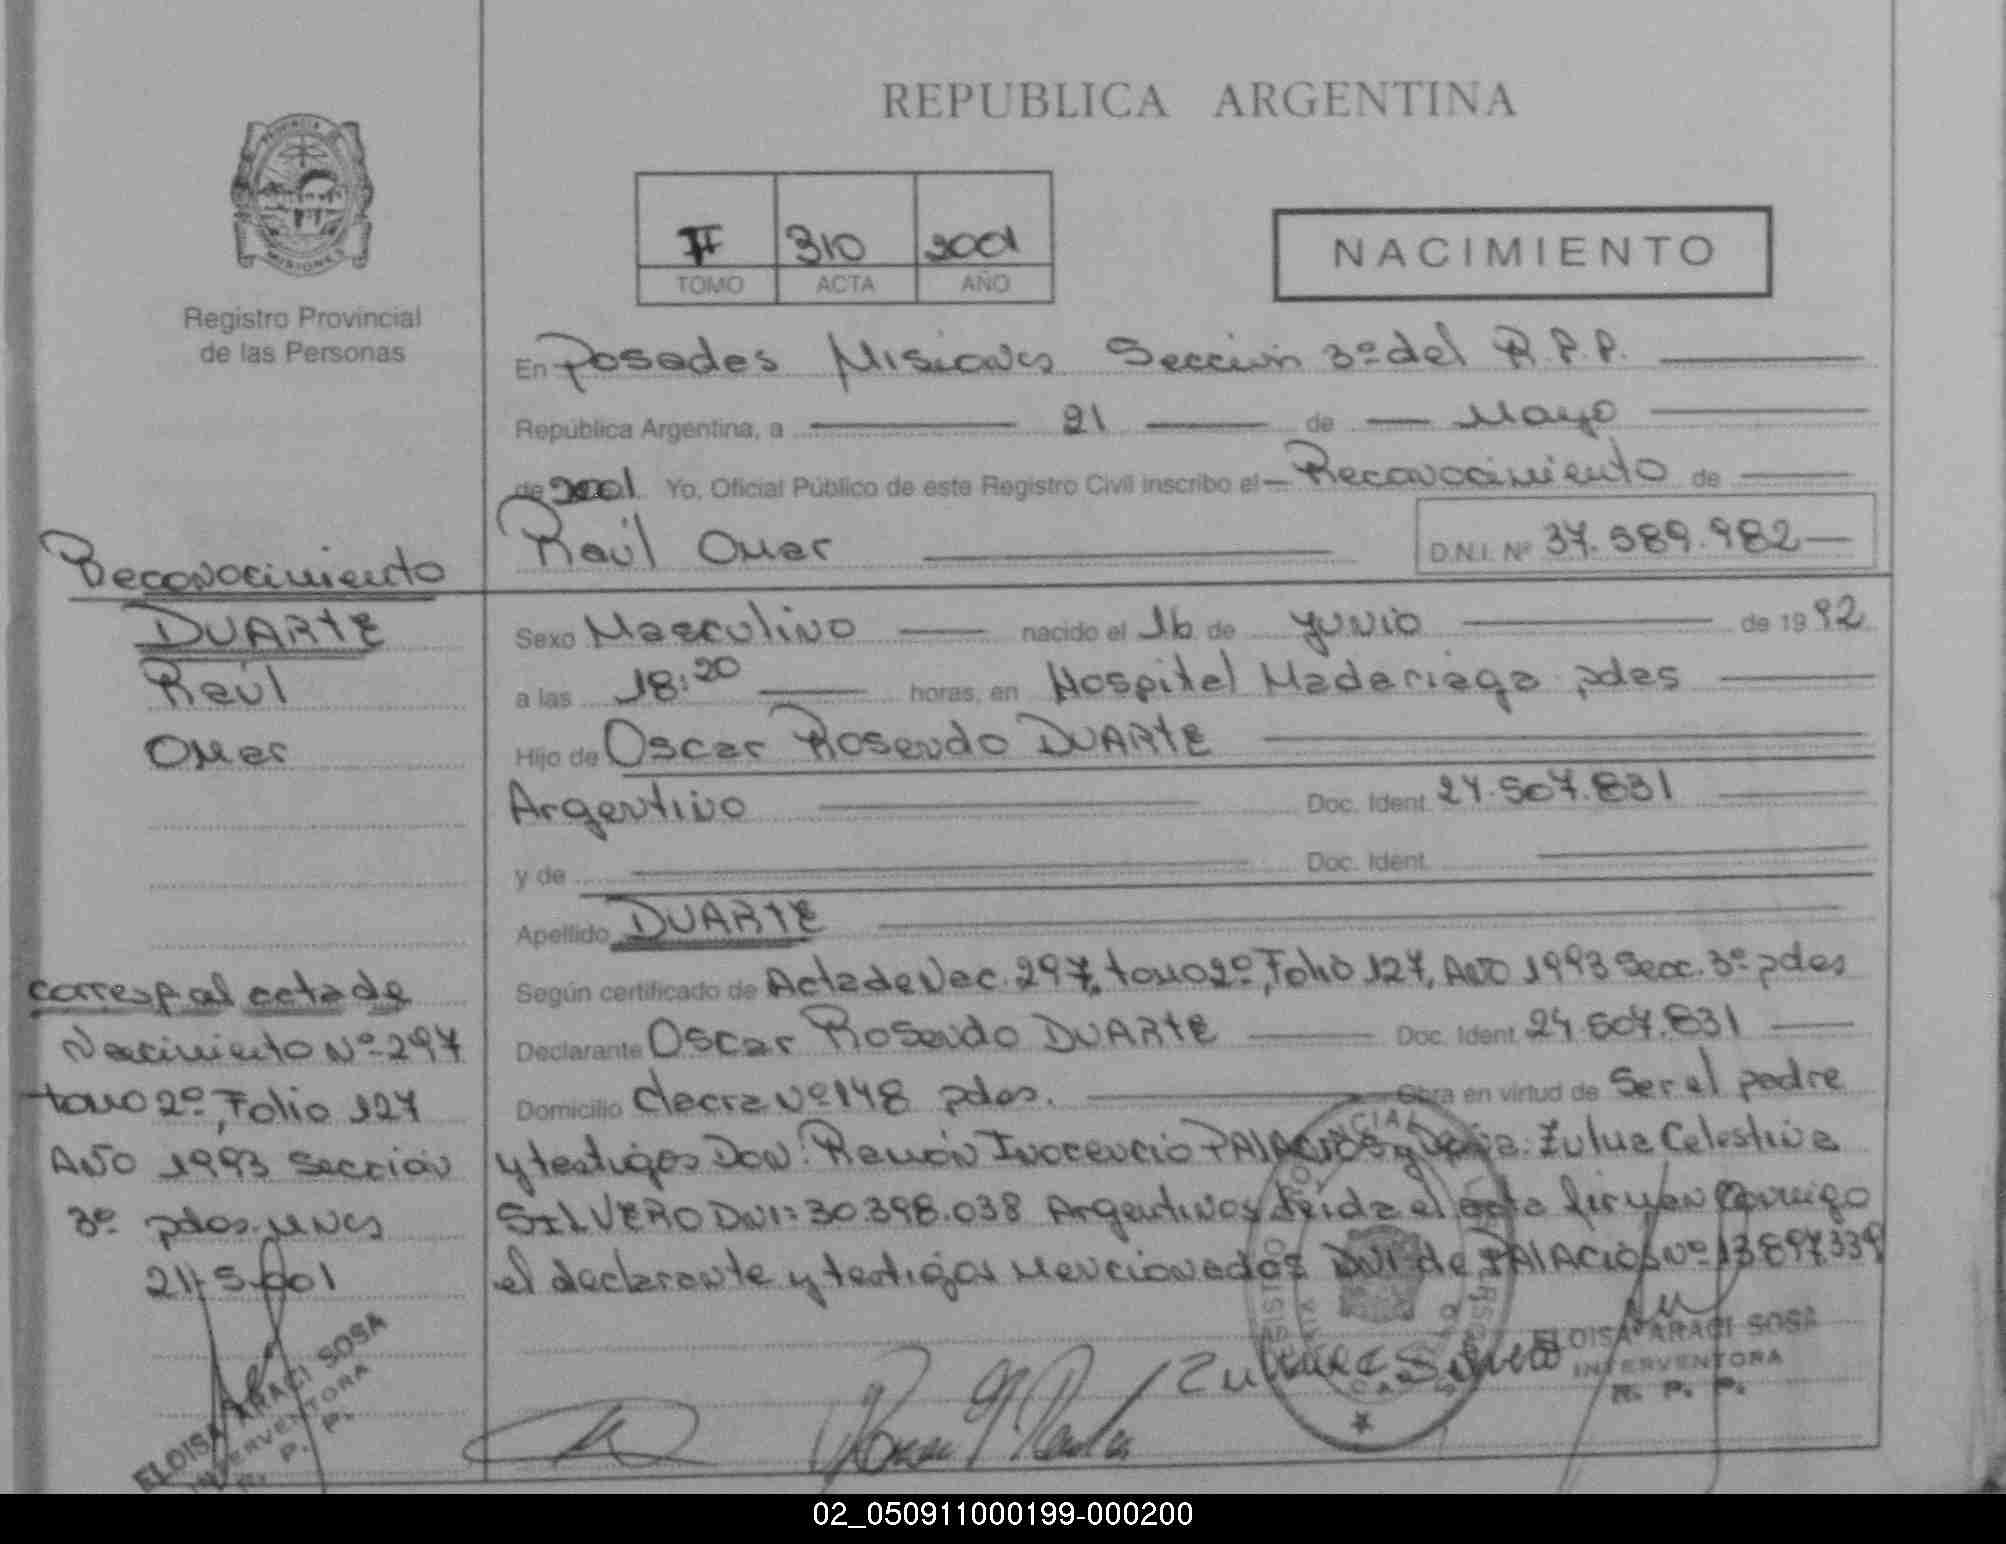 REPUBLICA ARGENTINA
PROVINCIA DE
MISIONES
Registro Provincial
de las Personas
II 310 2001
TOMO ACTA AÑO
NACIMIENTO
En Posadas Misiones Sección 3º del R.P.P.
República Argentina, a 21 de Mayo
de 2001 Yo, Oficial Público de este Registro Civil inscribo el Reconocimiento de
Raúl Omar D.N.I. Nº 37.589.982
Reconocimiento
DUARTE
Raúl
Omar
corresp al acta de
Nacimiento Nº 297
tomo 2º, Folio 127
Año 1993 Sección
3º pdas. Mnes
21-5-001
ELOISA ARACI SOSA
INTERVENTORA
R. P. P.
Sexo Masculino nacido el 16 de junio de 1992
a las 18:20 horas, en Hospital Madariaga pdas
Hijo de Oscar Rosendo DUARTE
Argentino Doc. Ident. 24.507.831
y de Doc. Ident.
Apellido DUARTE
Según certificado de Acta de Nac. 297, tomo 2º, Folio 127, Año 1993 Secc. 3º pdas
Declarante Oscar Rosendo DUARTE Doc. Ident. 24.507.831
Domicilio chacra Nº 148 pdas. Obra en virtud de Ser el padre
y testigos Don: Ramón Inocencio PALACIOS y Doña: Zulma Celestina
SILVERO DNI: 30.398.038 Argentinos Leida el acta firman conmigo
el declarante y testigos mencionados DNI de PALACIOS Nº 13897.339
ELOISA ARACI SOSA
INTERVENTORA
R. P. P.
02_050911000199-000200